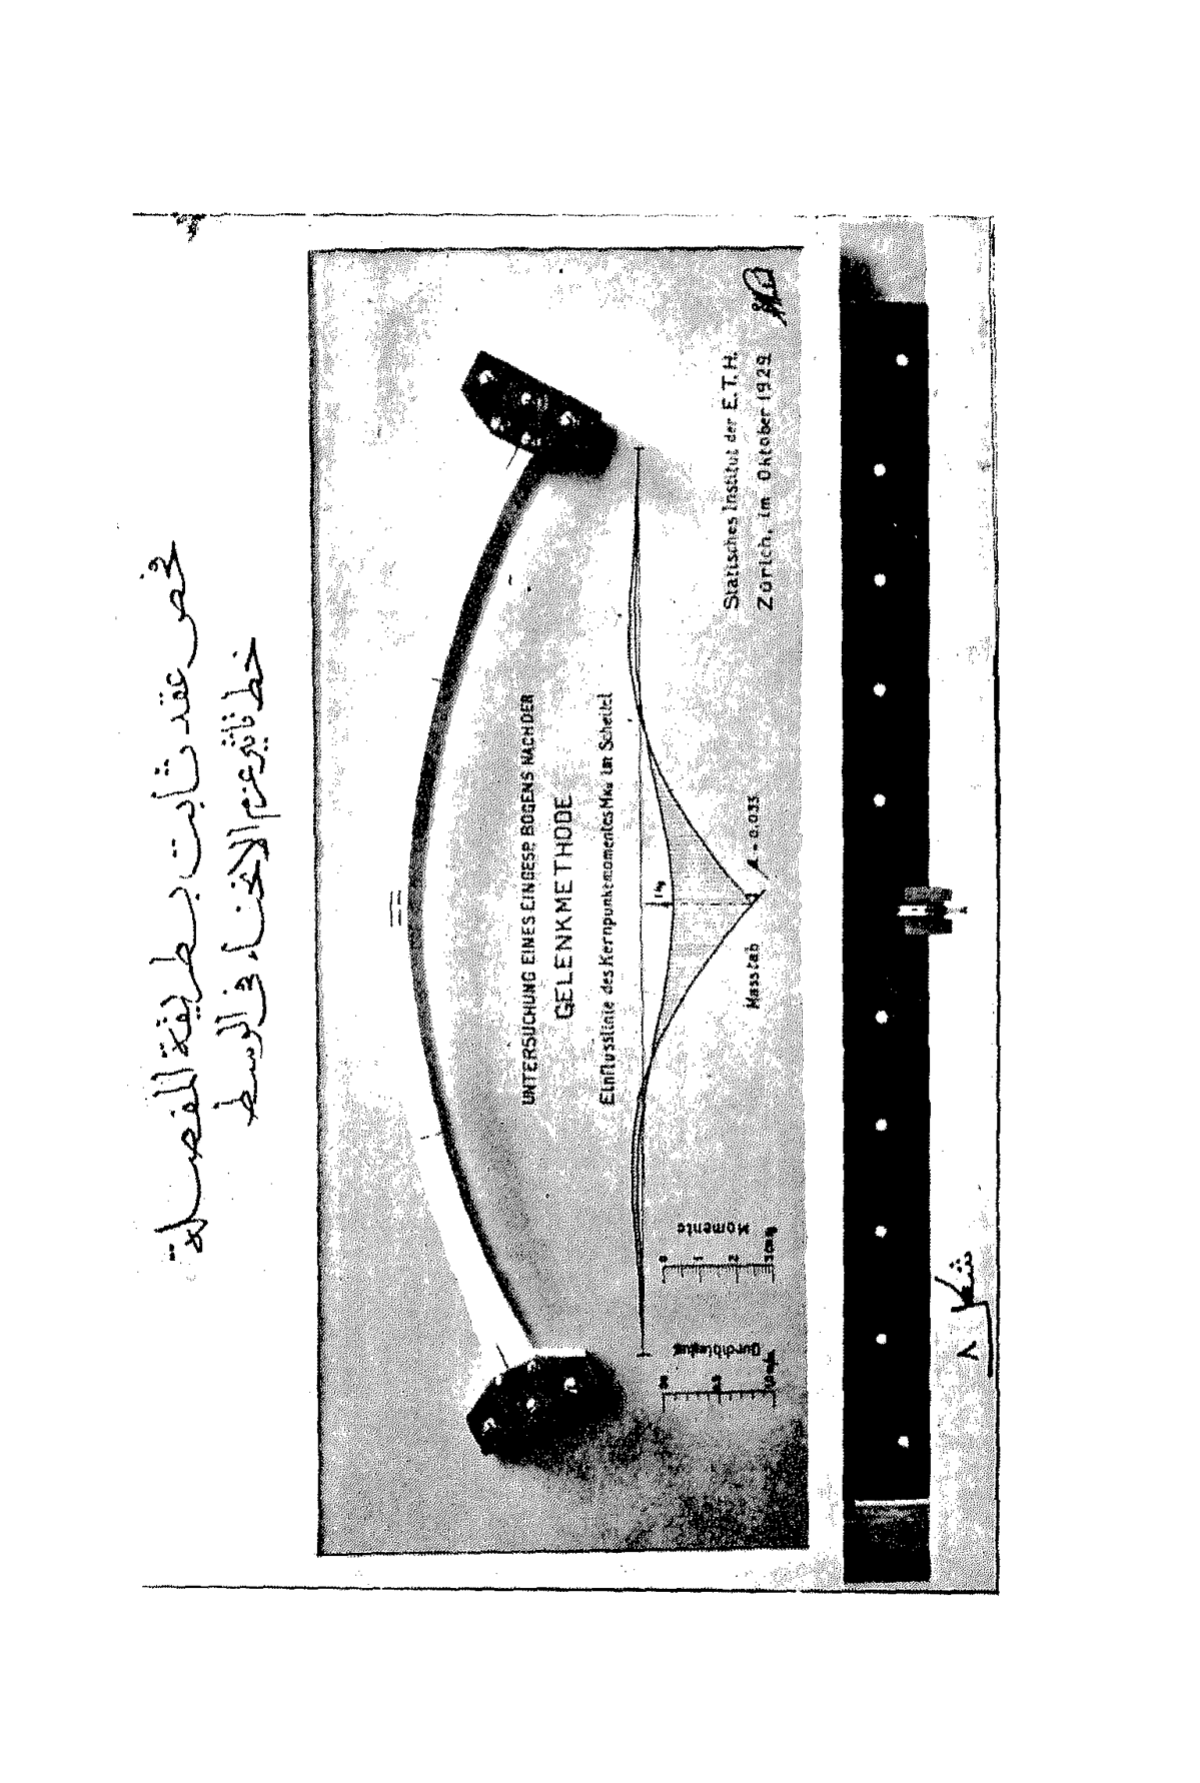 فحص عقد ثابت بطريقة المفصلة
خط تاثير عزم الانحناء فى الوسط
UNTERSUCHUNG EINES EINGESP. BOGENS NACH DER
GELENKMETHODE
Einflusslinie des Kernpunktmomentes Mku im Scheitel
Masstab
Durchbiegung
0.5
Momente
0
1
2
Statisches Institut der E.T.H.
Zürich, im Oktober 1929
شكل ٨